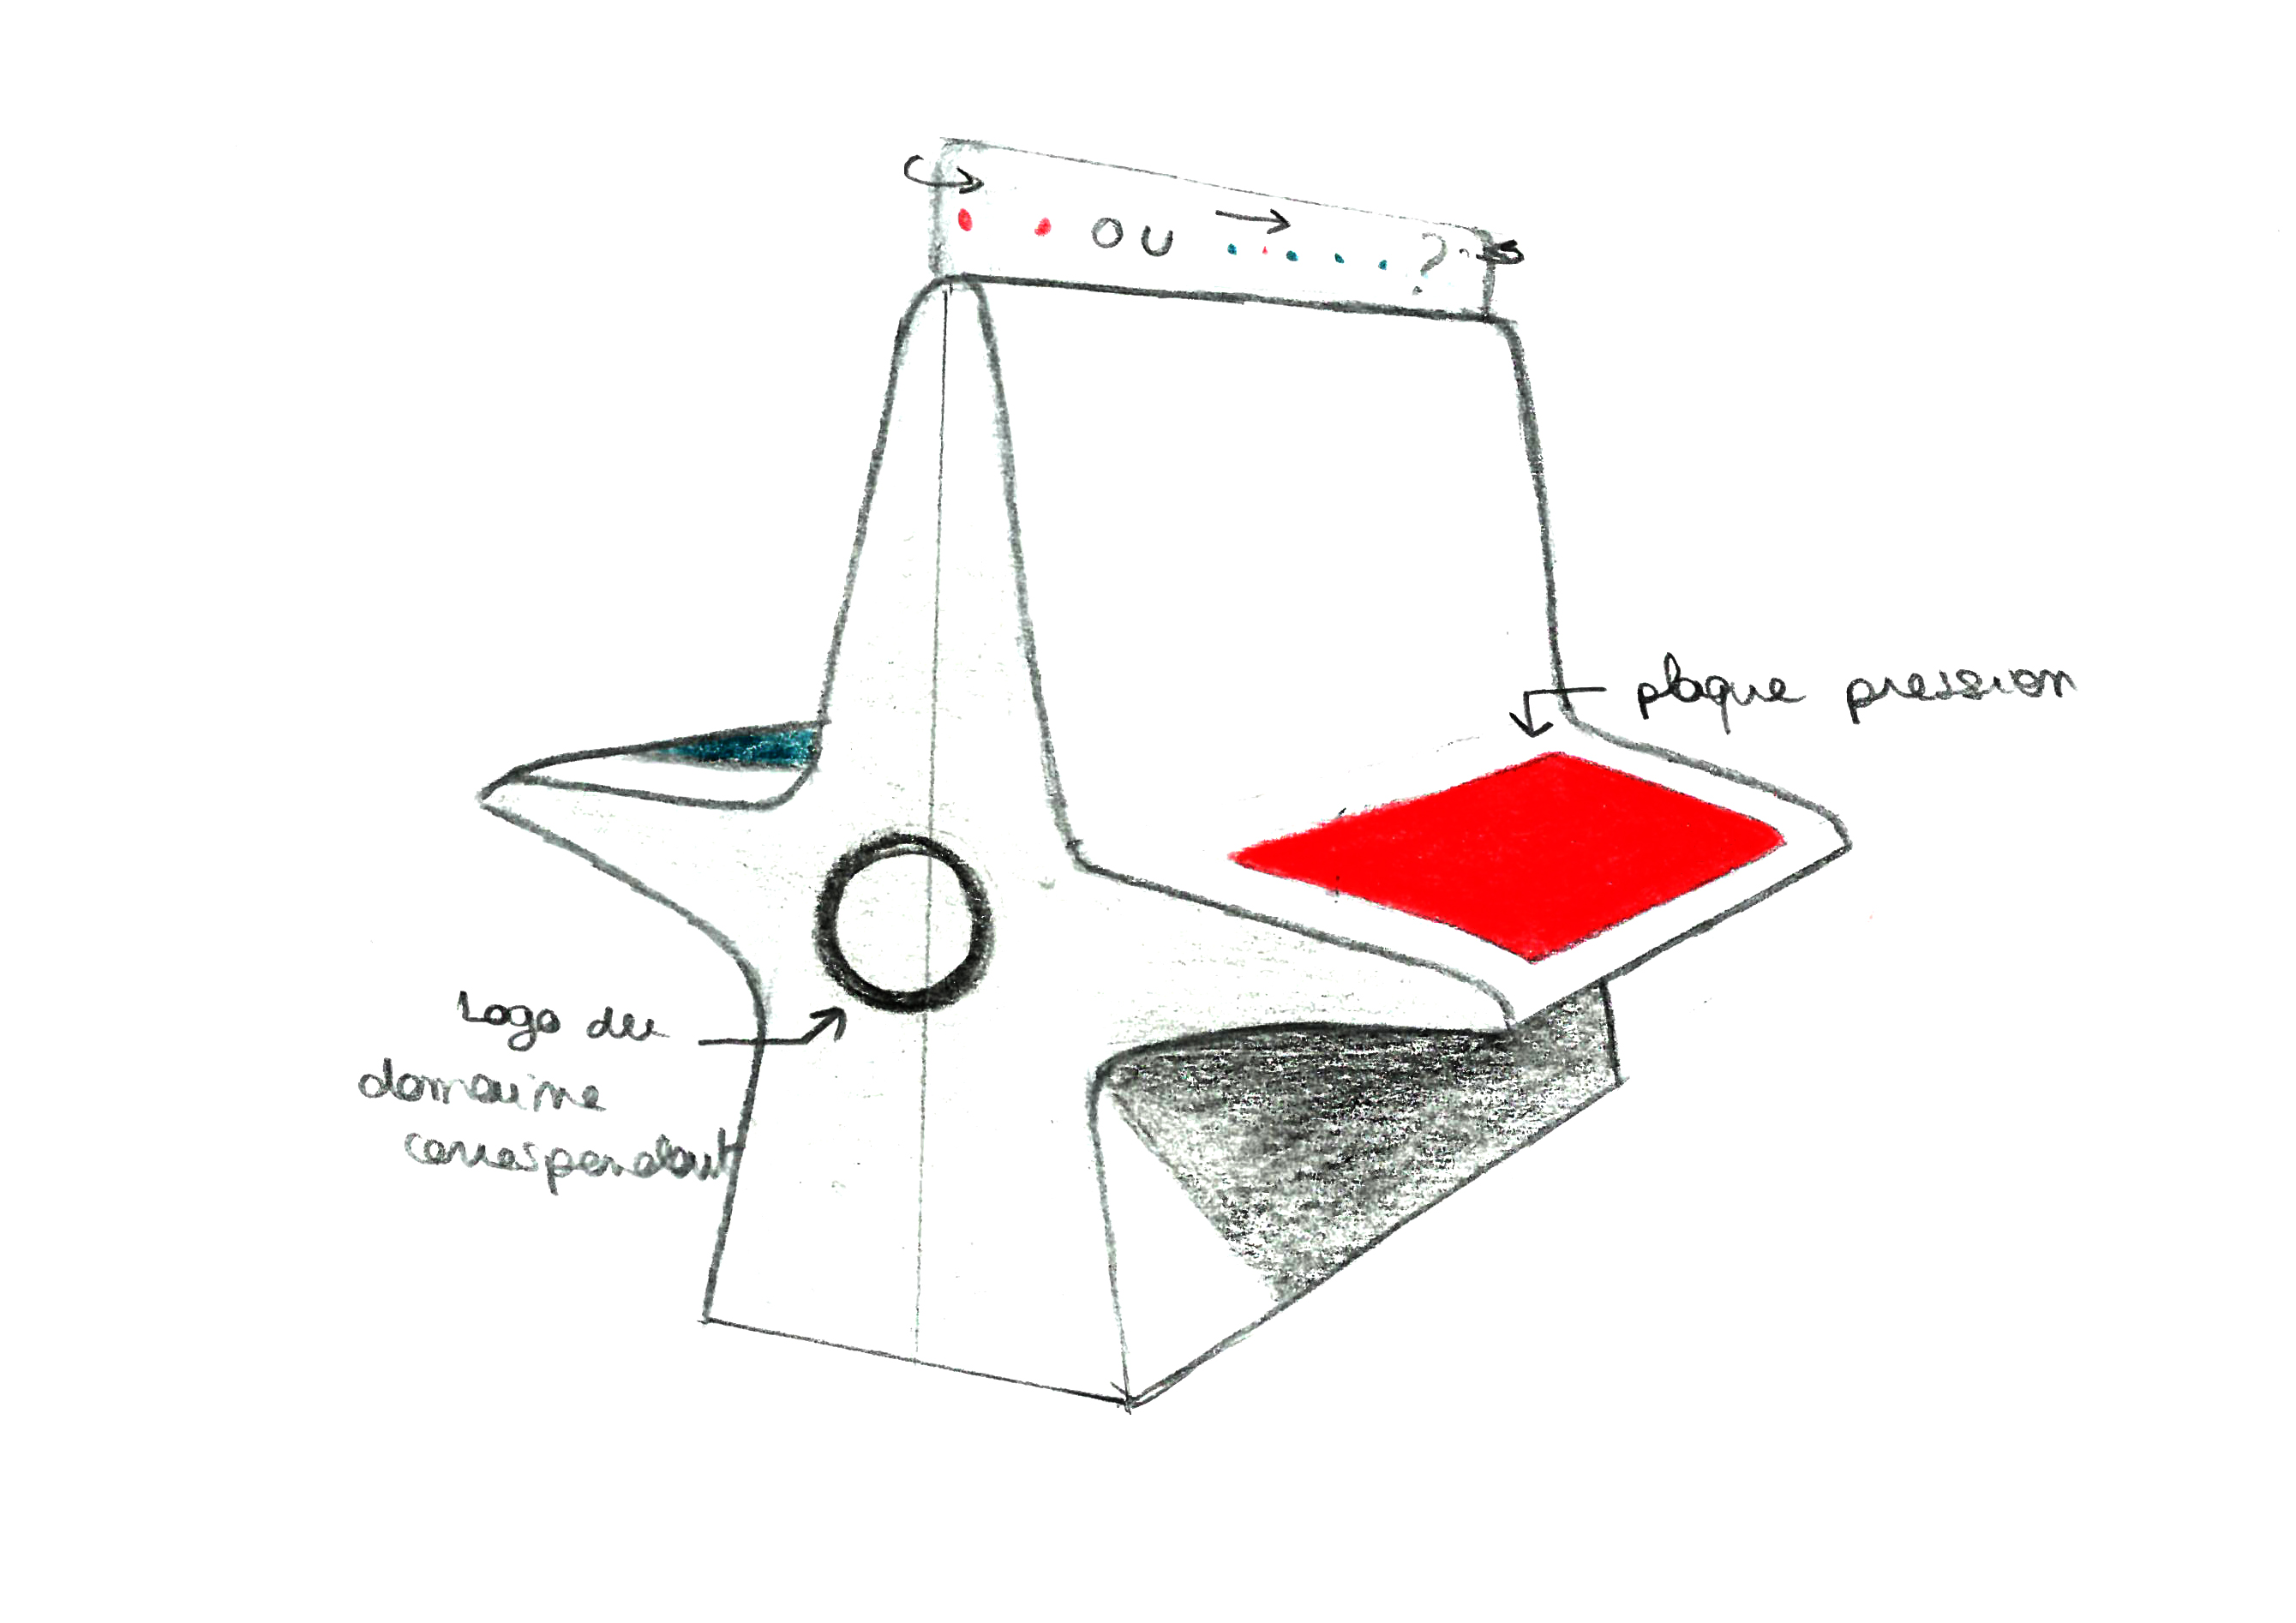 OU ?
plaque pression
Logo du
domaine
correspondant